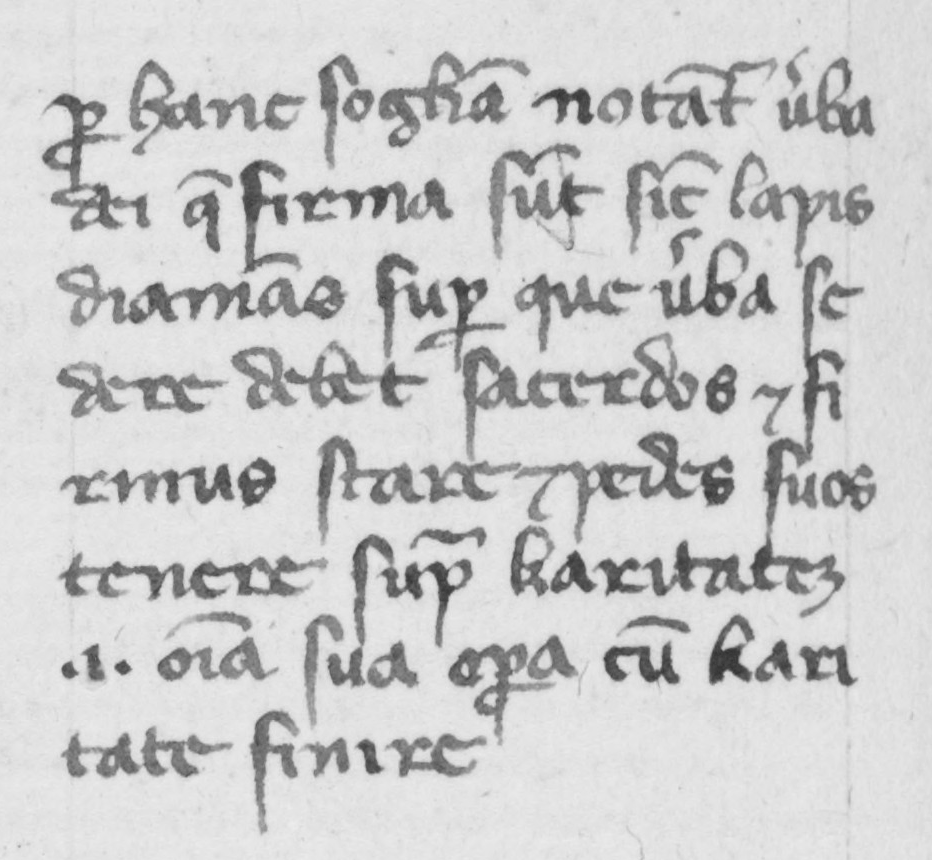 ꝑ hanc sogliā notāt᷑ ūba
dei q̄ firma sūt sic̄ lapis
diamās suꝑ que ūba se
dere debet sacerdos ⁊ fi
rmus stare ⁊ pedes suos
tenere sup̄ karitateꝫ
.i. oīa sua oꝑa cū kari
tate finire